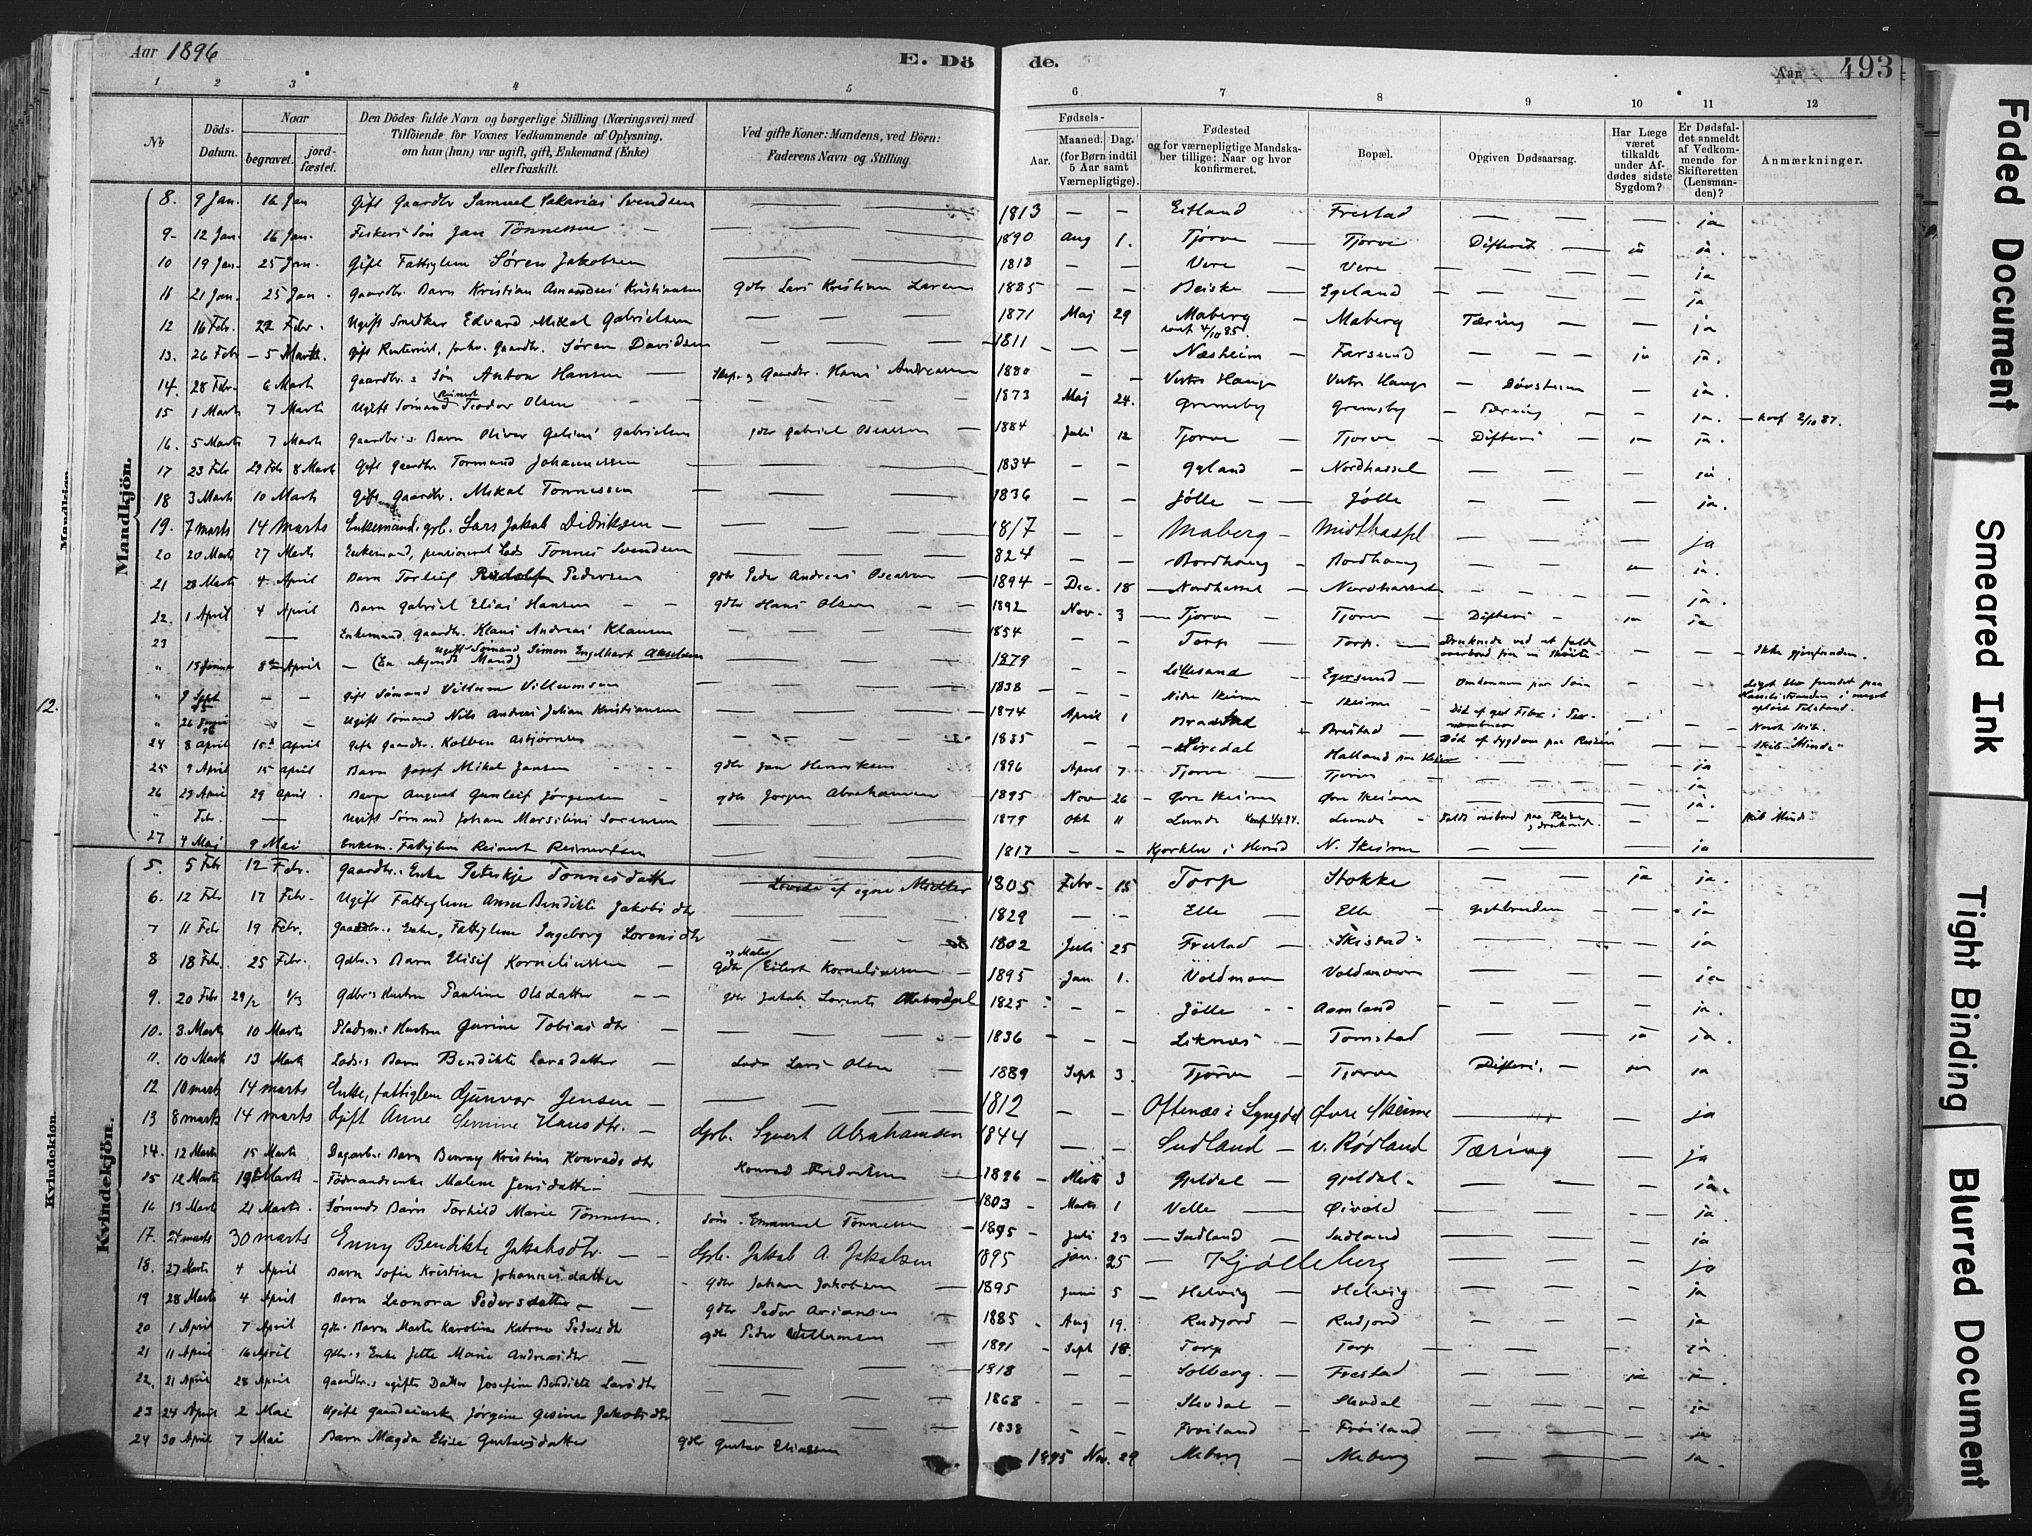 Aar 1896
E. Dö
de.
Aar
493
1 2 3 4 5 6 7 8 9 10 11 12
No.
Döds-Datum.
Naar
begravet.
jord-fæstet.
Den Dödes fulde Navn og borgerlige Stilling (Næringsvei) med
Tilföiende for Voxnes Vedkommende af Oplysning,
om han (hun) var ugift, gift, Enkemand (Enke)
eller fraskilt.
Ved gifte Koner: Mandens, ved Börn:
Faderens Navn og Stilling.
Fødsels-
Aar.
Maaned. Dag.
(for Børn indtil
5 Aar samt
Værnepligtige).
Fødested
og for værnepligtige Mandska-
ber tillige: Naar og hvor
konfirmeret.
Bopæl.
Opgiven Dødsaarsag.
Har Læge
været
tilkaldt
under Af-
dødes sidste
Sygdom?
Er Dødsfal-
det anmeldt
af Vedkom-
mende for
Skifteretten
(Lensman-
den)?
Anmærkninger.
Mandkjön.
8. 9 Jan. 16 Jan Gift Gaardbr Samuel Sakarias Svendsen 1813 Eitland Frestad ja
9 12 Jan. 16 Jan. Fiskers Søn Jan Tønnessen 1890 Aug 1. Tjørve Tjørve Difterit ja ja
10 19 Jan. 25 Jan. Gift Fattiglem Søren Jakobsen 1818 Vere Vere ja
11 21 Jan. 25 Jan. Gaardbr. Barn Kristian Amandus Kristiansen gdbr Lars Kristian Larsen 1885 Egeland ja
12 16 Febr. 22 Febr. Ugift Snedker Edvard Mikal Gabrielsen 1871 Maj 29 Maberg konf 4/10 85 Maberg Tæring ja
13. 26 Febr 5 Marts. Gift Rentenist, forhv. Gaardbr. Søren Davidsen 1811 Næsheim Farsund ja ja.
14. 28 Febr. 6 Marts Gaardbr.s Søn Anton Hansen Skip. og Gaardbr. Hans Andreassen 1880 Vestre Hauge Vestre Hauge ja
15 1 Marts 7 Marts Ugift Sømand Reinert Teodor Olsen 1873 Maj 24. Grimsby Grimsby Tæring ja konf 2/10 87.
16. 5 Marts 7 Marts Gaardbr.s Barn Oliver Gabrielsen gdbr Gabriel 1884 Juli 12 Tjørve Tjørve Difteri ja ja
17 23 Febr 29 Febr 8 Marts Gift Gaardbr Tormund Johannessen 1834 Gyland Nordhassel ja
18 3 Marts 10 Marts Gift Gaardbr. Mikal Tønnessen 1836 Jølle Jølle ja.
19. 7 marts 14 Marts Enkemand, grb. Lars Jakob Didriksen 1817 Maberg Midthassel ja
20 20 Marts 27 Marts Enkemand, pensioneret Lods Tønnes Svendsen 1824 Bordhaug Bordhaug ja.
21 28 Marts 4 April Barn Torleif Rudolf Pedersen gdbr Peder Andreas 1894 Dec. 18 Nordhassel Nordhassel ja.
22. 1 April 4 April Barn Gabriel Elias Hansen gdbr Hans Olsen 1892 Nov. 3 Tjørve Tjørve Difteri ja ja
23 Enkemand Gaardbr. Klaus Andreas Klausen 1854 Torp Torp. Druknede ved at falde overbord fra en Skøite Ikke gjenfunden.
8de April (En ukjendt Mand) Ugift Sømand Simon Engelhart Akselsen 1879 Lillesand Egersund Omkommen paa Søen Liget blev fundet paa
9 Sept 95 Gift Sømand Villum Villumsen 1838 Nedre Skeime Skeime Død af gul Feber i Norsk Skib.
26 Juni Ugift Sømand Nils Andreas Johan Kristiansen 1874 April 1 Brastad Brastad Død af Sygdom paa Reisen Skib "Minde"
24 8 April 15 April Gift Gaardbr. Kolben Asbjørnsen 1835 Siredal ja
25 9 April 15 April Barn Josef Mikal Jansen gdbr Jan Henriksen 1896 April 7 Tjørve Tjørve ja
26 23 April 29 April. Barn August Gunleif Jørgensen gdbr Jørgen Abrahamsen 1895 Nov 26 Øvre Skeime Øvre Skeime ja.
Febr. Ugift Sømand Johan Marselius Sørensen 1879 Okt 11 Lunde Lunde Faldt overbord paa Reise og druknede. Skib Minde
27 4 Maj 9 Mai Enkem. Fattiglem Reinert Reinertsen 1817 i Herred N. Skeime ja
Kvindekjön.
5. 5 Febr 12 Febr. Gaardbr.s Enke Peterikje Tønnesdatter Levede af egne Midler 1805 Febr. 15 Torp Stokke ja ja.
6. 12 Febr 17 Febr. Ugift Fattiglem Anne Bendikte Jakobsdtr 1829 Elle Elle ja
7 11 Febr 19 Febr. Gaardbr.s Enke, Fattiglem Ingeborg Lorensdtr 1802 Juli 25 Frestad Skistad ja
8 18 Febr. 25 Febr. Gdbr.s Barn Elisif Korneliussen gdbr og Maler Eilert Korneliussen 1895 Jan 1. Voldmoen Voldmoen ja
9. 20 Febr 29/2 1/3 Gdbr.s Hustru Pauline Olsdatter gdbr Jakob Lorents 1825 Jølle Aamland ja.
10. 3. Marts 10 Marts Pladsm.s Hustru Gurine Tobiasdtr 1836 Liknæs Tomstad ja ja.
11. 10 Marts 13 Marts Lods.s Barn Bendikte Larsdatter Lods Lars Olsen 1889 Sept 3. Tjørve Tjørve Difteri, ja ja
12 10 marts 14 marts Enke, fattiglem Gunvor Jensen 1812 Oftenæs i Lyngdal Øvre Skeime ja
13 8 marts 14 marts Gift Anne Semine Hansdtr. Grb. Syvert Abrahamsen 1844 Sudland v. Rødland Tæring ja
14. 12 Marts 15 Marts Dagarb.s Barn Kristine Konradsdtr Konrad Fredriksen 1896 Marts 3 Gjeldal Gjeldal ja.
15 12 Marts 19 Marts Føderaadsenke Malene Jensdatter 1803 Marts 1 Velle Øivold ja.
16 13 Marts 21 Marts. Sømands Barn Torhild Marie Tønnesen. Søm. Emanuel Tønnessen 1895 Juli 23 Sudland Sudland ja
17. 24 marts 30 marts Enny Bendikte Jakobsdtr. Grb. Jakob A. Jakobsen 1895 jan. 25 Kjølleberg ja
18. 27 Marts 4 April Barn Sofie Kristine Johannesdatter gdbr Johan Jakobsen 1895 Juni 5 Helvig Helvig ja
19 28 Marts 4 April Barn Leonora Pedersdatter gdbr Peder Ariansen 1885 Aug 19. Rudjord Rudjord ja
20 1 April 7 April Gdbr. Barn Marte Karoline Katrine Pedersdtr gdbr Peder Villumsen 1891 Sept 18. Torp Torp ja
21 11 April 16 April Gdbr.s Enke Jette Marie Andreasdtr 1818 Solberg Frestad ja ja
22. 21 April 28 April Gaardbr.s ugifte Datter Josefine Bendikte Larsdtr 1868 Stevdal Stevdal ja
23 24 April 2 Mai Ugift Jørgine Gesine Jakobsdtr 1838 Frøiland Frøiland ja
24 30 April 7 Mai Barn Magda Elise Gustavsdatter gdbr Gustav Eliassen 1895 Nov. 29 Meberg Meberg ja
12.
Mandkjön
Kvindekjön
Faded Document
Smeared Ink
Tight Binding
Blurred Document